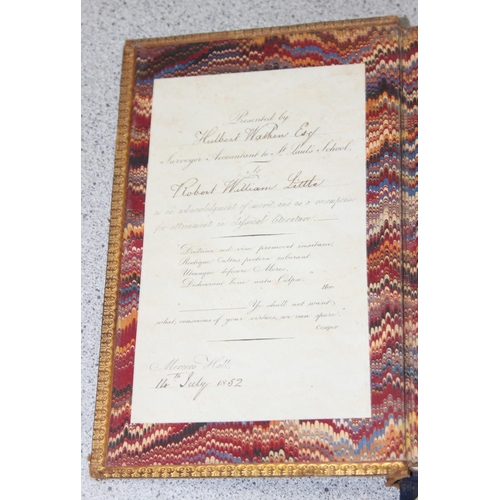 Presented by
Hulbert Wathen Esq
Surveyor Accountant to St. Paul's School,
To
Robert William Little
as an acknowledgment of merit, and as a recompense
for attainment in Classical Literature.
"Doctrina sed vim promovet insitam,
Rectique Cultus pectora roborant
Utcunque defecere Mores,
Dedecorant bene nata Culpæ."
Hor
" Ye shall not want
what, conscious of your virtues, we can spare"
Cowper
Mercers' Hall
14th July 1852